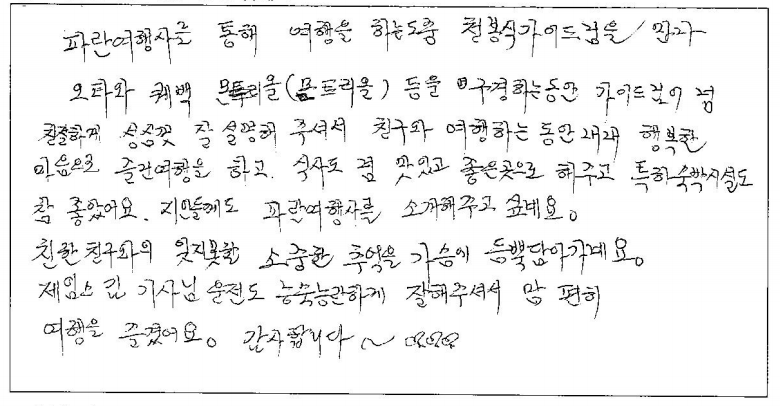 파란여행사를 통해 여행을 하는도중 철봉식가이드님을 만나
오타와 퀘백 몬투리올(몬트리올) 등을 구경하는동안 가이드님이 넘
친절하게 성심껏 잘 설명해 주셔서 친구와 여행하는 동안 내내 행복한
마음으로 즐간여행을 하고. 식사도 넘 맛있고 좋은곳으로 해주고 특히숙박시설도
참 좋았어요. 지인들께도 파란여행사를 소개해주고 싶네요。
친한친구와의 잊지못할 소중한 추억을 가슴에 듬뿍담아가네요。
제임스 킴 기사님 운전도 능숙능란하게 잘해주셔서 맘 편히
여행을 즐겼어요。 감사합니다~